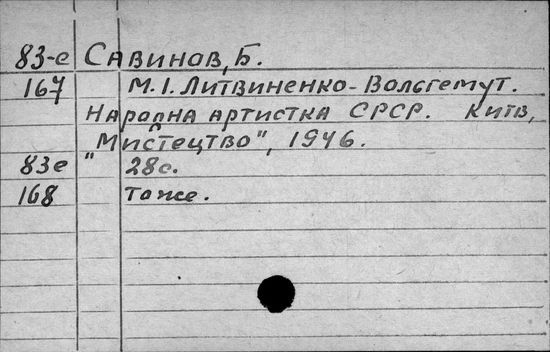 83-е Савинов, Б.
167 М. І. Литвиненко-Вольгемут.
Народна артистка СРСР. Київ,
"Мистецтво", 1946.
83е 28с.
168 Тоже.